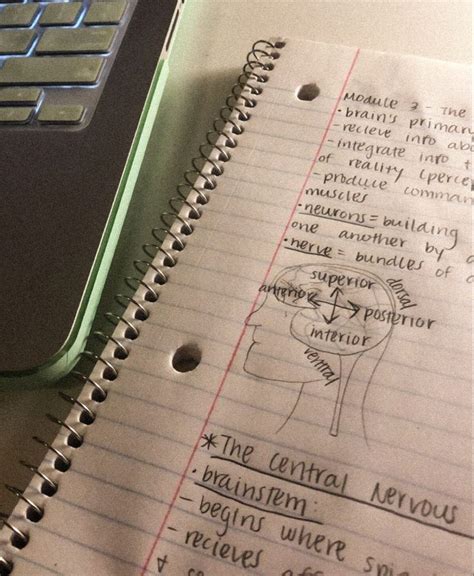 Module 2 - The
• brain's primar
- recieve info abo
- integrate info t
of reality (perce
- produce comman
muscles
• neurons = building
one another by a
• nerve = bundles of
superior
dorsal
anterior
posterior
interior
ventral
*The Central Nervous
• brainstem:
- begins where spi
- recieves aff